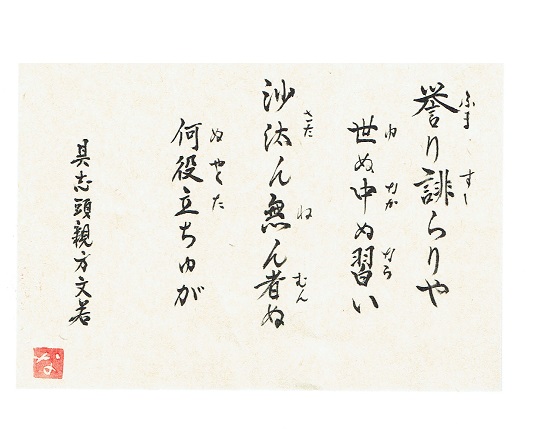 ふま すし
誉り誹らりや
ゆ なか なら
世ぬ中ぬ習い
さた ね むん
沙汰ん無ん者ぬ
ぬ やく た
何役立ちゅが
具志頭親方文若